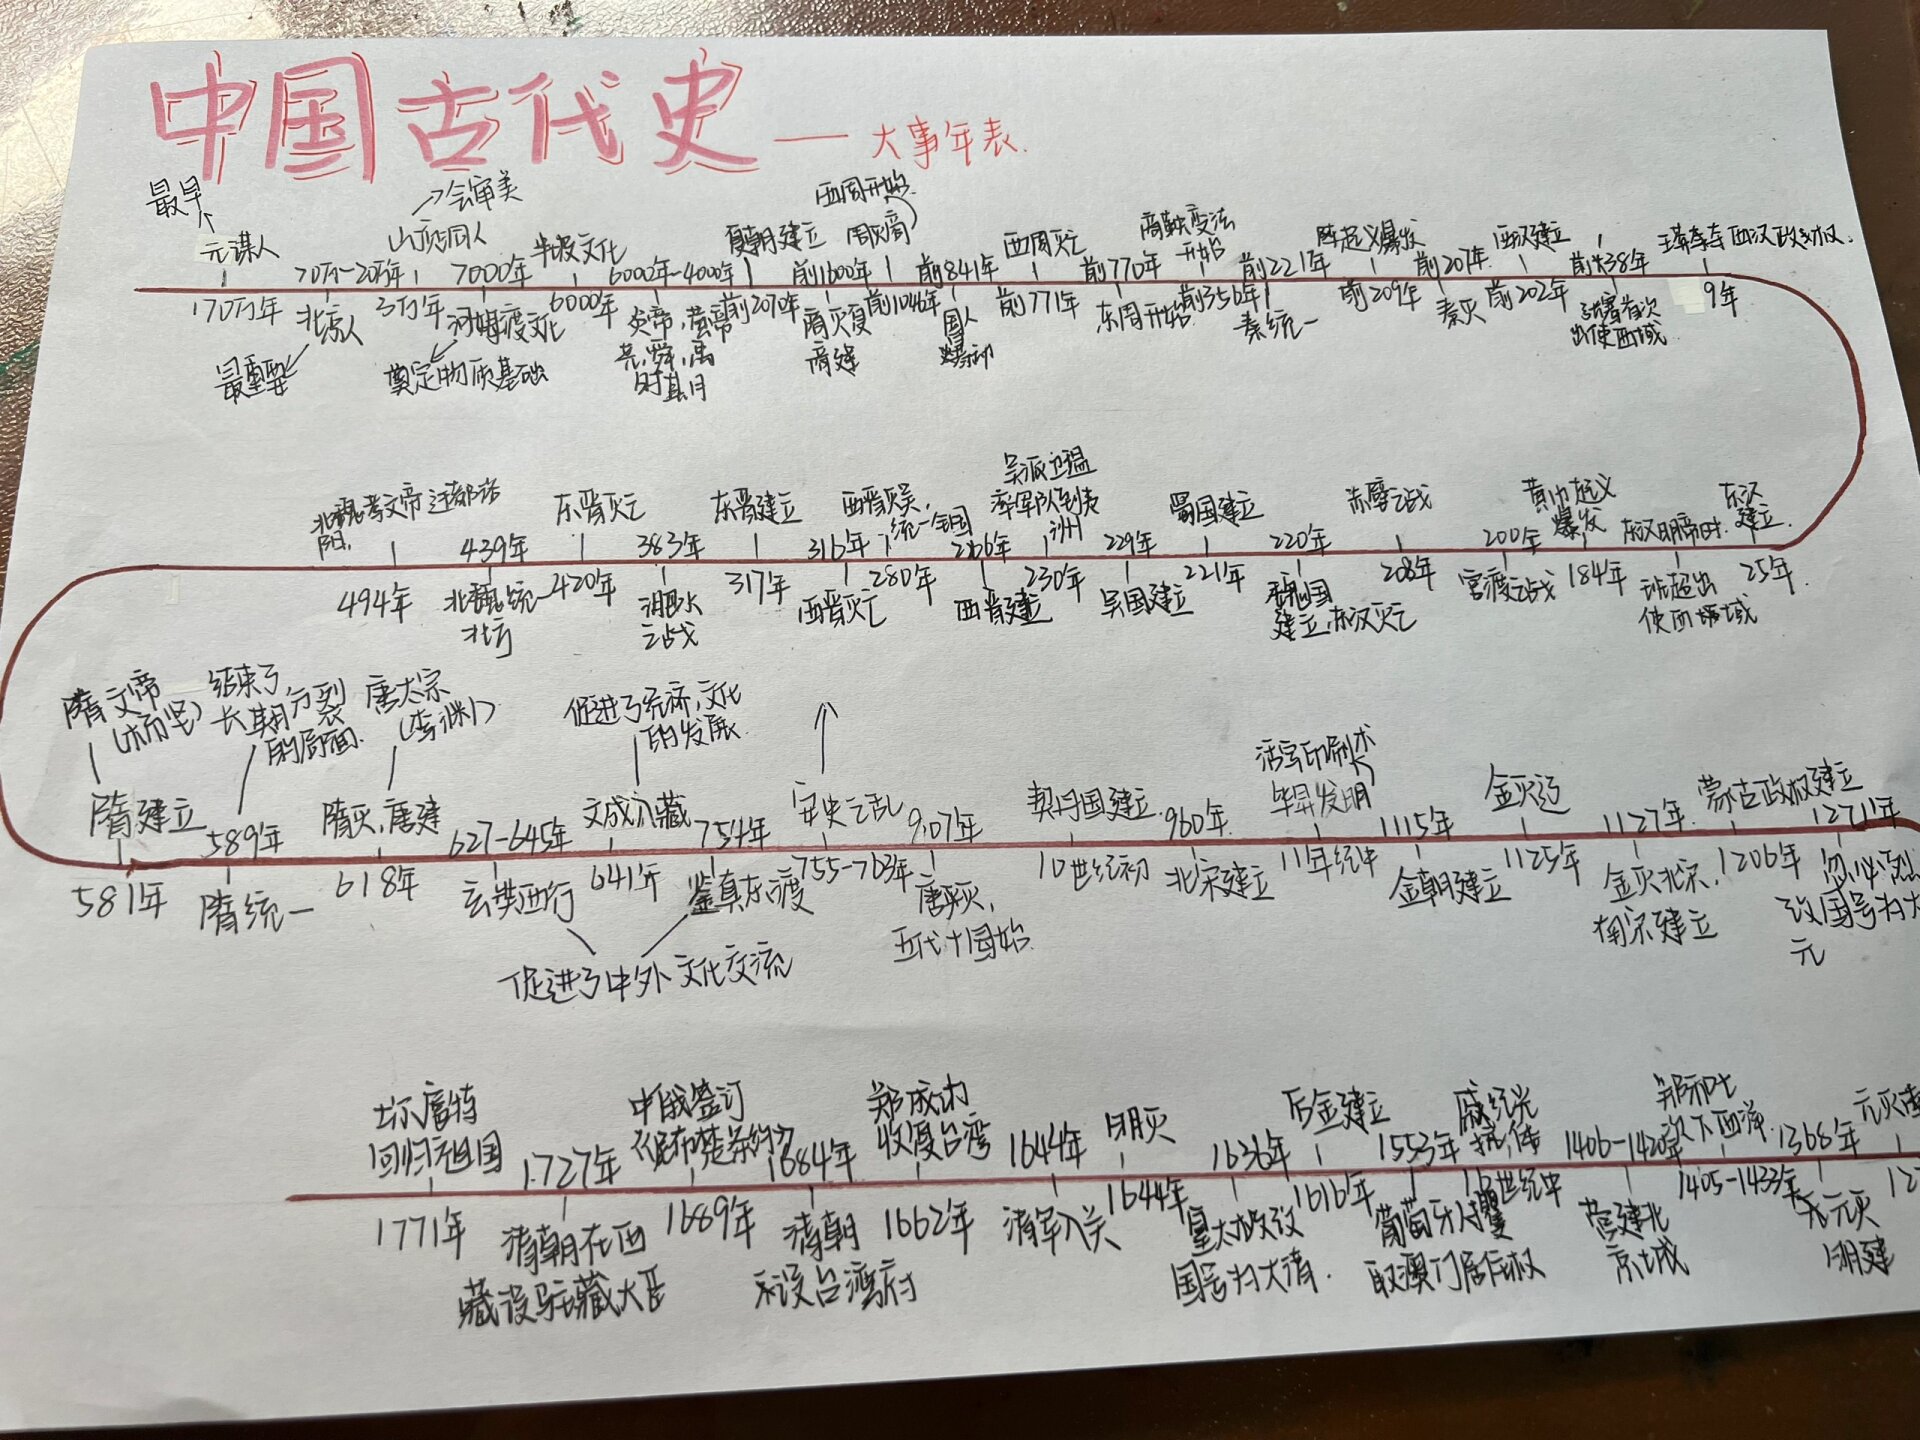 中国古代史——大事年表.
最早
元谋人
170万年
70万-20万年
北京人
最重要
→会审美
山顶洞人
3万年
7000年
河姆渡文化
奠定物质基础
半坡文化
6000年
6000年-4000年
炎帝,黄帝
尧,舜,禹
时期
夏朝建立
前2070年
前1600年
商灭夏
商建
西周开始
周灭商
前1046年
前841年
国人
暴动
西周灭亡
前771年
前770年
东周开始
商鞅变法
开始
前356年
前221年
秦统一
陈起义爆发
前209年
前207年
秦灭
西汉建立
前202年
前138年
张骞首次
出使西域
王莽夺西汉政权.
9年
东汉
建立.
25年
东汉明帝时.
班超出
使西域
黄巾起义
爆发
184年
200年
官渡之战
赤壁之战
208年
220年
魏国
建立,东汉灭亡
蜀国建立
221年
229年
吴国建立
吴派卫温
率军队到夷
洲
230年
266年
西晋建立
西晋灭吴,
统一全国
280年
316年
西晋灭亡
东晋建立
317年
383年
淝水
之战
东晋灭亡
420年
439年
北魏统一
北方
北魏孝文帝迁都洛
阳.
494年
隋文帝
(杨坚)
隋建立
581年
结束了
长期分裂
的局面.
589年
隋统一
唐太宗
(李渊)
隋灭,唐建
618年
627-645年
玄奘西行
促进了经济,文化
的发展.
文成入藏
641年
754年
鉴真东渡
促进了中外文化交流
安史之乱
755-763年
907年
唐灭,
五代十国始.
契丹国建立
10世纪初
960年.
北宋建立
活字印刷术
毕昇发明
11年纪中
1115年
金朝建立
金灭辽
1125年
1127年.
金灭北宋,
南宋建立
蒙古政权建立
1206年
1271年
忽必烈
改国号为大
元
元灭南
12
1368年
元灭
明建
郑和七
次下西洋.
1405-1433年
1406-1420年
营建北
京城
戚继光
抗倭
16世纪中
1553年
葡萄牙人攫
取澳门居住权
后金建立
1616年
1636年
皇太极改
国号为大清.
明灭
1644年
1644年
清军入关
郑成功
收复台湾
1662年
1684年
清朝
设台湾府
中俄签订
《尼布楚条约》
1689年
1727年
清朝在西
藏设驻藏大臣
土尔扈特
回归祖国
1771年